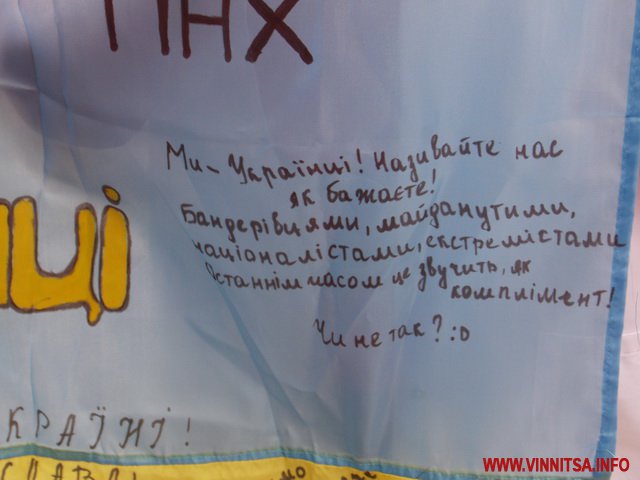 ПНХ
Ми - Українці! Називайте нас
як бажаєте!
Бандерівцями, майданутими,
націоналістами, екстремістами
Останнім часом це звучить, як
комплімент!
Чи не так? :D
ці
КРАЇНІ!
WWW.VINNITSA.INFO